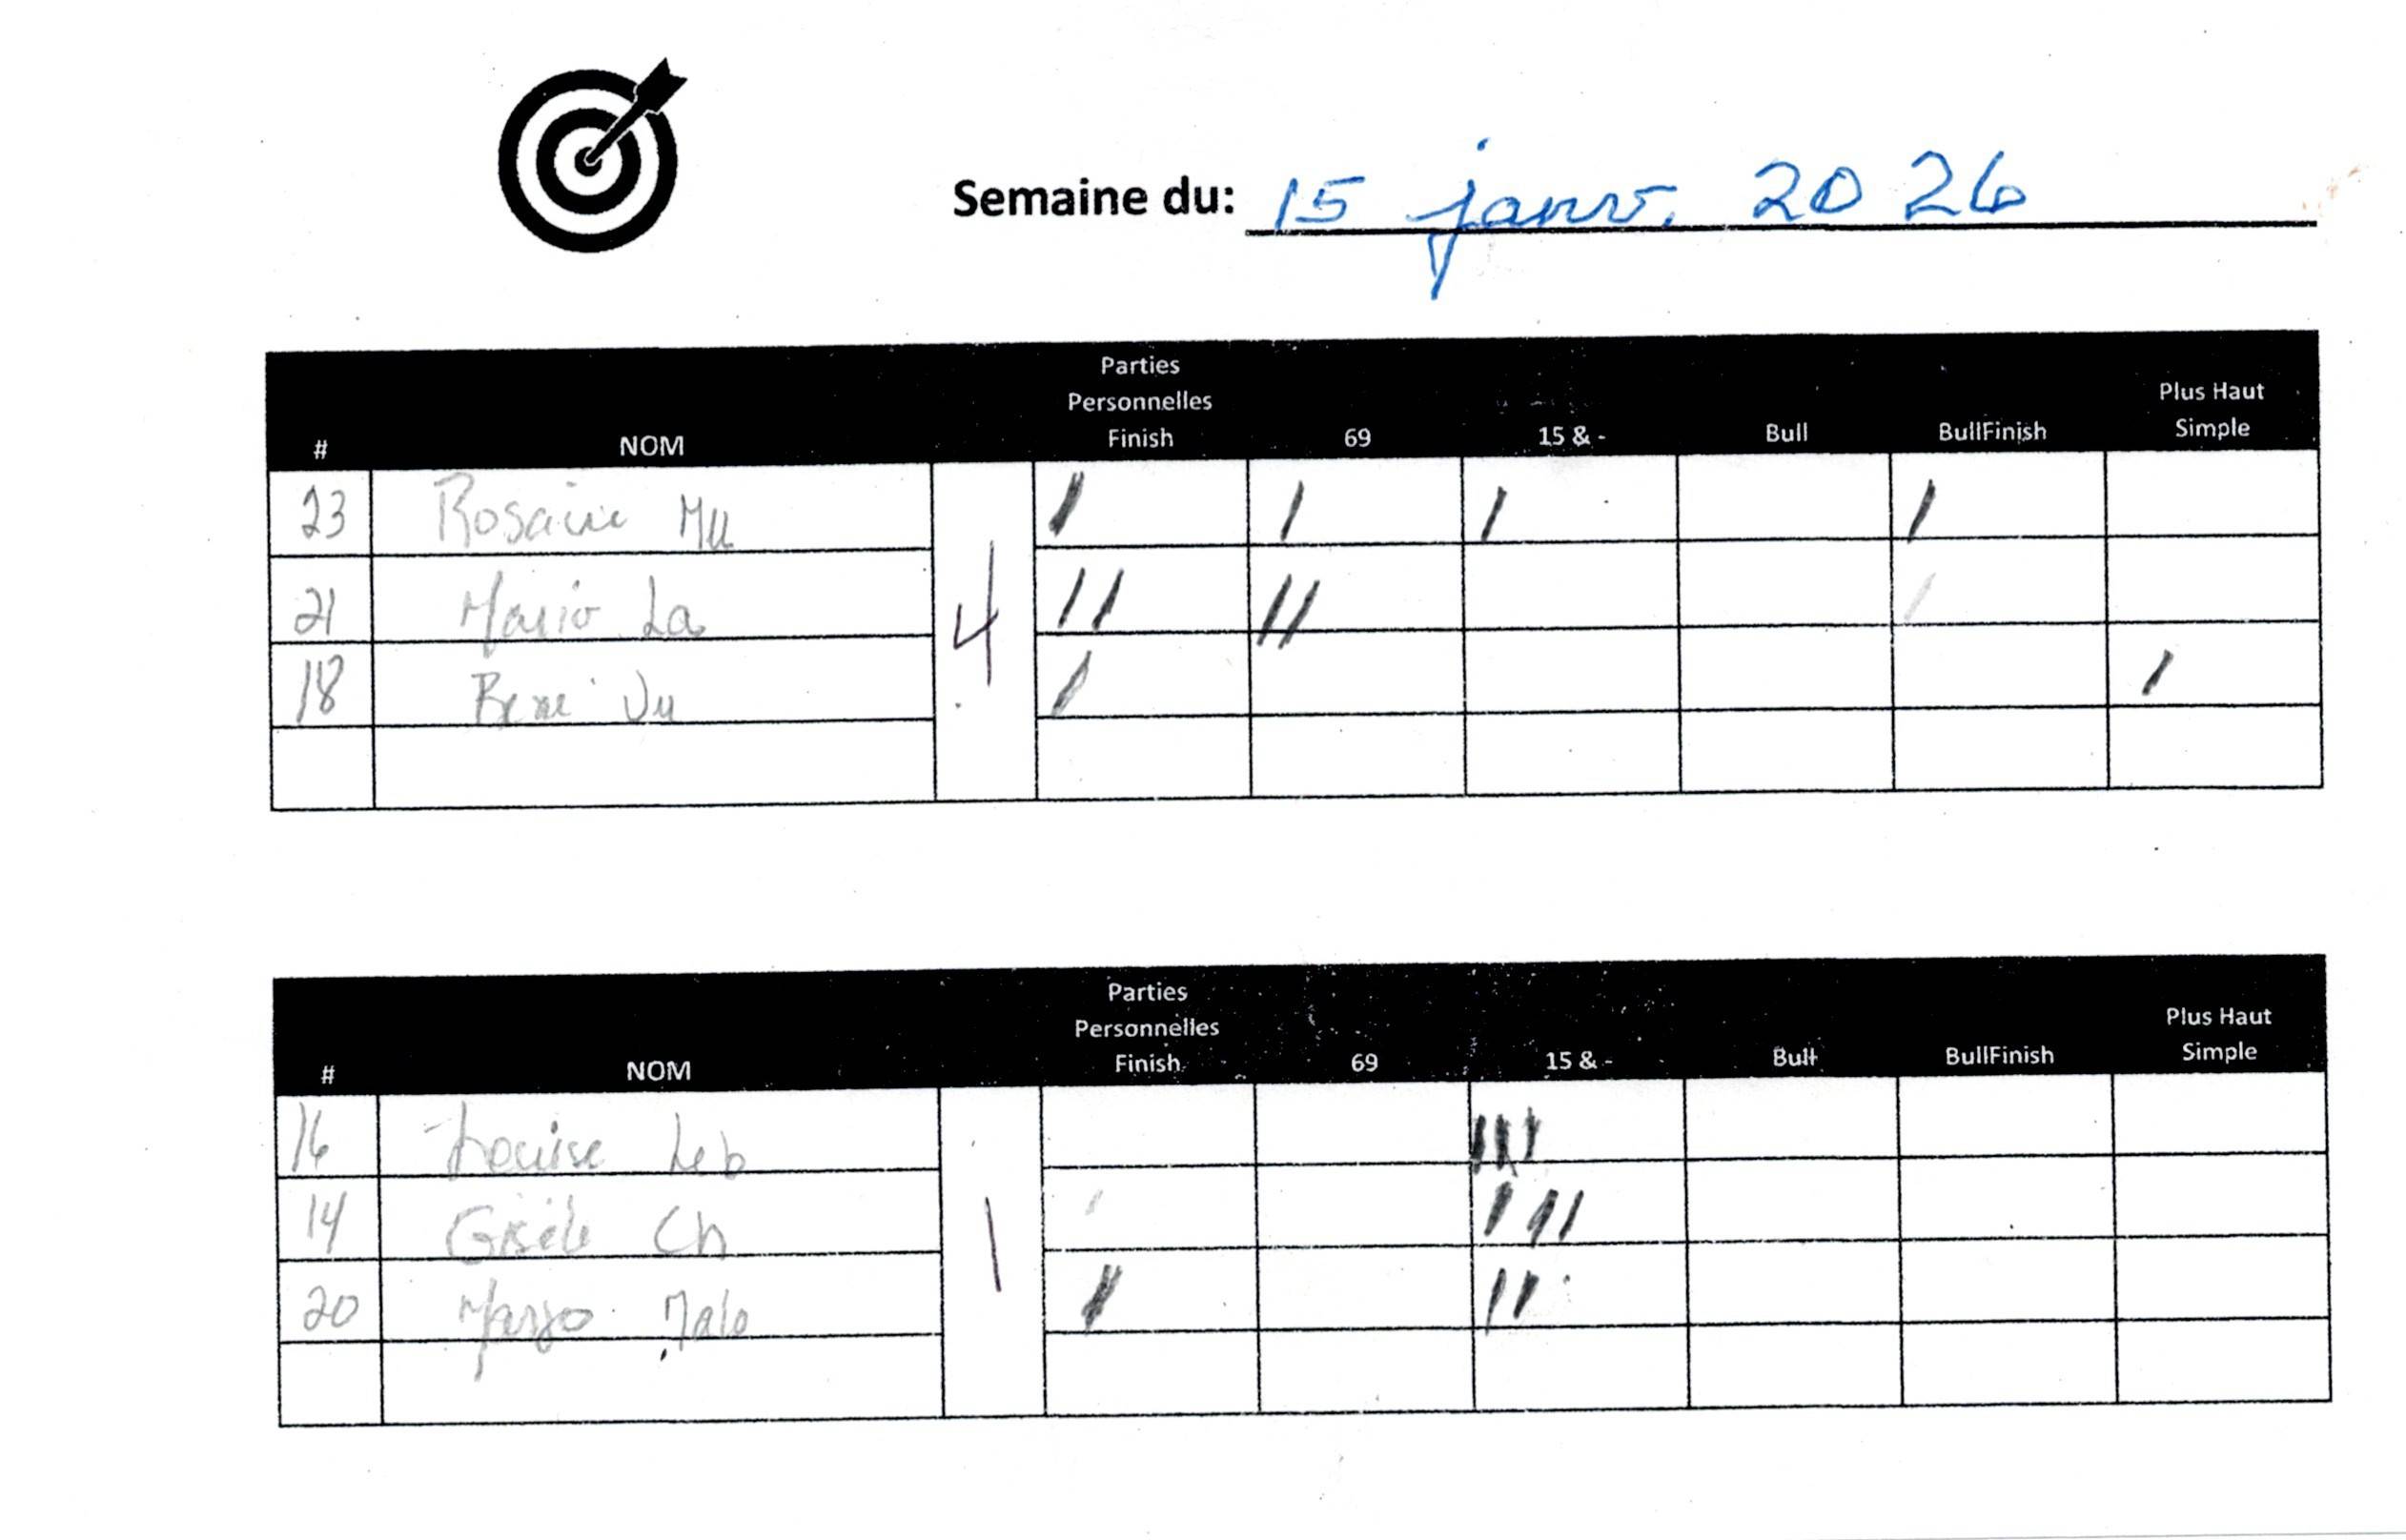 Semaine du: 15 janv. 2026
Parties
Personnelles
Finish
Plus Haut
Simple
# NOM 69 15 & - Bull BullFinish
23 Rosaire Mu / / / /
21 Mario La // // /
18 René Vu / /
4
Parties
Personnelles
Finish
Plus Haut
Simple
# NOM 69 15 & - Bull BullFinish
16 Louise Leb ///
14 Gisèle Ch / ///
20 Margo Malo / //
1